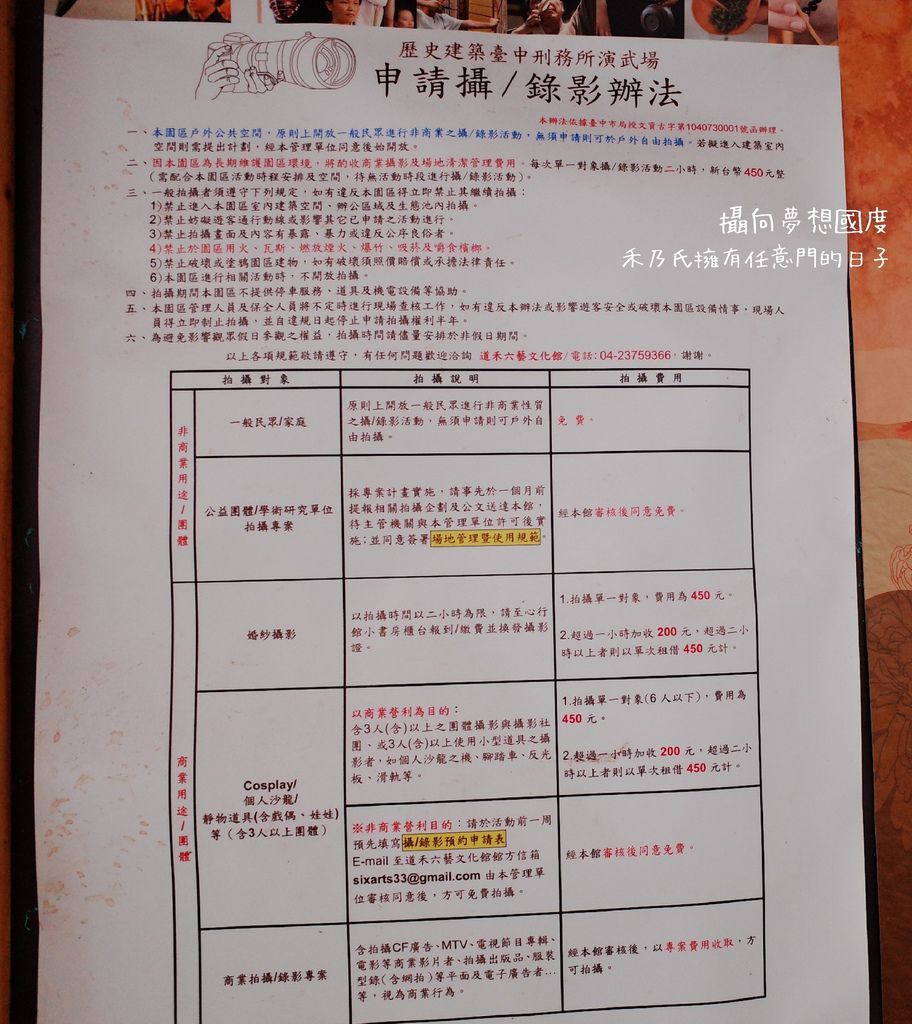 歷史建築臺中刑務所演武場
申請攝/錄影辦法
本辦法依據臺中市局授文資古字第1040730001號函辦理。
一、本園區戶外公共空間，原則上開放一般民眾進行非商業之攝/錄影活動，無須申請則可於戶外自由拍攝。若擬進入建築室內
空間則需提出計劃，經本管理單位同意後始開放。
二、因本園區為長期維護園區環境，將酌收商業攝影及場地清潔管理費用。每次單一對象攝/錄影活動二小時，新台幣450元整
(需配合本園區活動時程安排及空間，待無活動時段進行攝/錄影活動)。
三、一般拍攝者須遵守下列規定，如有違反本園區得立即禁止其繼續拍攝：
1)禁止進入本園區室內建築空間、辦公區域及生態池內拍攝。
2)禁止妨礙遊客通行動線或影響其它已申請之活動進行。
3)禁止拍攝畫面及內容有暴露、暴力或違反公序良俗者。
4)禁止於園區用火、瓦斯、燃放煙火、爆竹、吸菸及嚼食檳榔。
5)禁止破壞或塗鴉園區建物，如有破壞須照價賠償或承擔法律責任。
6)本園區進行相關活動時，不開放拍攝。
四、拍攝期間本園區不提供停車服務、道具及機電設備等協助。
五、本園區管理人員及保全人員將不定時進行現場查核工作，如有違反本辦法或影響遊客安全或破壞本園區設備情事，現場人
員得立即制止拍攝，並自違規日起停止申請拍攝權利半年。
六、為避免影響觀眾假日參觀之權益，拍攝時間請儘量安排於非假日期間。
以上各項規範敬請遵守，有任何問題歡迎洽詢 道禾六藝文化館/電話：04-23759366，謝謝。
攝向夢想國度
禾乃氏擁有任意門的日子
拍攝對象 拍攝說明 拍攝費用
非商業用途/團體
一般民眾/家庭
原則上開放一般民眾進行非商業性質
之攝/錄影活動，無須申請則可戶外自
由拍攝。
免費。
公益團體/學術研究單位
拍攝專案
採專案計畫實施，請事先於一個月前
提報相關拍攝企劃及公文送達本館，
待主管機關與本管理單位許可後實
施；並同意簽署場地管理暨使用規範。
經本館審核後同意免費。
商業用途/團體
婚紗攝影
以拍攝時間以二小時為限，請至心行
館小書房櫃台報到/繳費並換發攝影
證。
1.拍攝單一對象，費用為 450 元。
2.超過一小時加收 200 元，超過二小
時以上者則以單次租借 450 元計。
Cosplay/
個人沙龍/
靜物道具(含戲偶、娃娃)
等（含3人以上團體）
以商業營利為目的：
含3人(含)以上之團體攝影與攝影社
團、或3人(含)以上使用小型道具之攝
影者，如個人沙龍之機、腳踏車、反光
板、滑軌等。
1.拍攝單一對象(6 人以下)，費用為
450 元。
2.超過一小時加收 200 元，超過二小
時以上者則以單次租借 450 元計。
※非商業營利目的：請於活動前一周
預先填寫攝/錄影預約申請表
E-mail 至道禾六藝文化館館方信箱
sixarts33@gmail.com 由本管理單
位審核同意後，方可免費拍攝。
經本館審核後同意免費。
商業拍攝/錄影專案
含拍攝CF廣告、MTV、電視節目專輯、
電影等商業影片者、拍攝出版品、服裝
型錄(含網拍)等平面及電子廣告者...
等，視為商業行為。
經本館審核後，以專案費用收取，方
可拍攝。